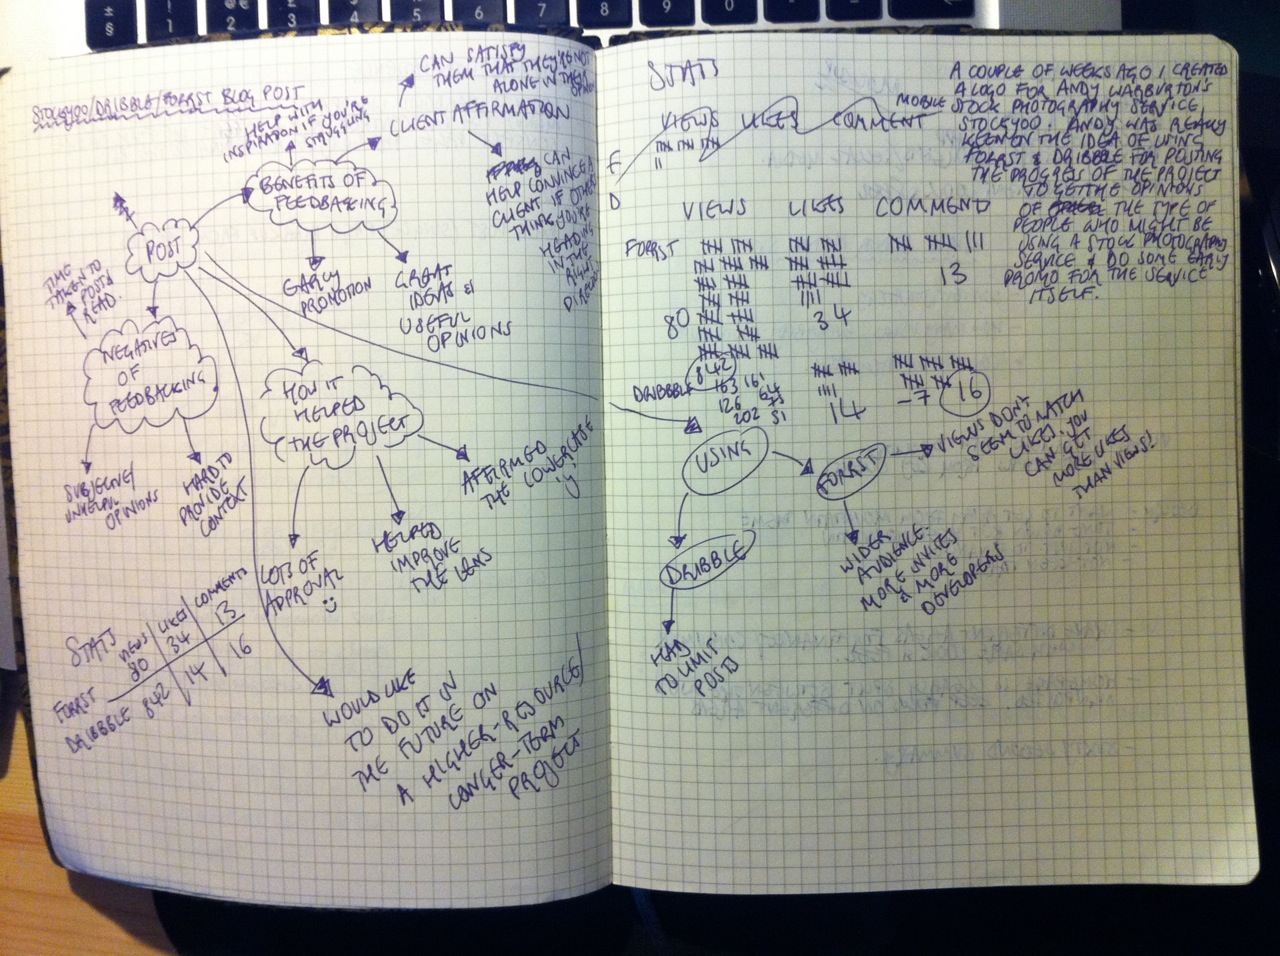 STOCKYOO/DRIBBLE/FORRST BLOG POST
HELP WITH
INSPIRATION IF YOU'RE
STRUGGLING
CAN SATISFY
THEM THAT THEY'RE NOT
ALONE IN THEIR
OPINION
CLIENT AFFIRMATION
CAN
HELP CONVINCE A
CLIENT IF OTHERS
THINK YOU'RE
HEADING
IN THE
RIGHT
DIRECTION
BENEFITS OF
FEEDBACKING
POST
EARLY
PROMOTION
GREAT
IDEAS &
USEFUL
OPINIONS
TIME
TAKEN TO
POST &
READ.
NEGATIVES
OF
FEEDBACKING
SUBJECTIVE/
UNHELPFUL
OPINIONS
HARD TO
PROVIDE
CONTEXT
HOW IT
HELPED
THE PROJECT
LOTS OF
APPROVAL
HELPED
IMPROVE
THE LENS
AFFIRMED
THE LOWERCASE
'y'
STATS
VIEWS LIKES COMMENTS
FORRST 80 34 13
DRIBBBLE 842 14 16
WOULD LIKE
TO DO IT IN
THE FUTURE ON
A HIGHER-RESOURCE/
LONGER-TERM
PROJECT
STATS
VIEWS LIKES COMMENT
MOBILE
F
D
VIEWS LIKES COMMEND
FORRST
80
34
13
DRIBBBLE
842
163 161
126 64
75
202 51
14
-7
16
USING
FORRST
VIEWS DON'T
SEEM TO MATCH
LIKES. YOU
CAN GET
MORE LIKES
THAN VIEWS!
WIDER
AUDIENCE.
MORE INVITES
& MORE
DEVELOPERS
DRIBBLE
HAD
TO LIMIT
POSTS
A COUPLE OF WEEKS AGO I CREATED
A LOGO FOR ANDY WARBURTON'S
STOCK PHOTOGRAPHY SERVICE,
STOCKYOO. ANDY WAS REALLY
KEEN ON THE IDEA OF USING
FORRST & DRIBBLE FOR POSTING
THE PROGRESS OF THE PROJECT
TO GET THE OPINIONS
OF THE TYPE OF
PEOPLE WHO MIGHT BE
USING A STOCK PHOTOGRAPHY
SERVICE & DO SOME EARLY
PROMO FOR THE SERVICE
ITSELF.